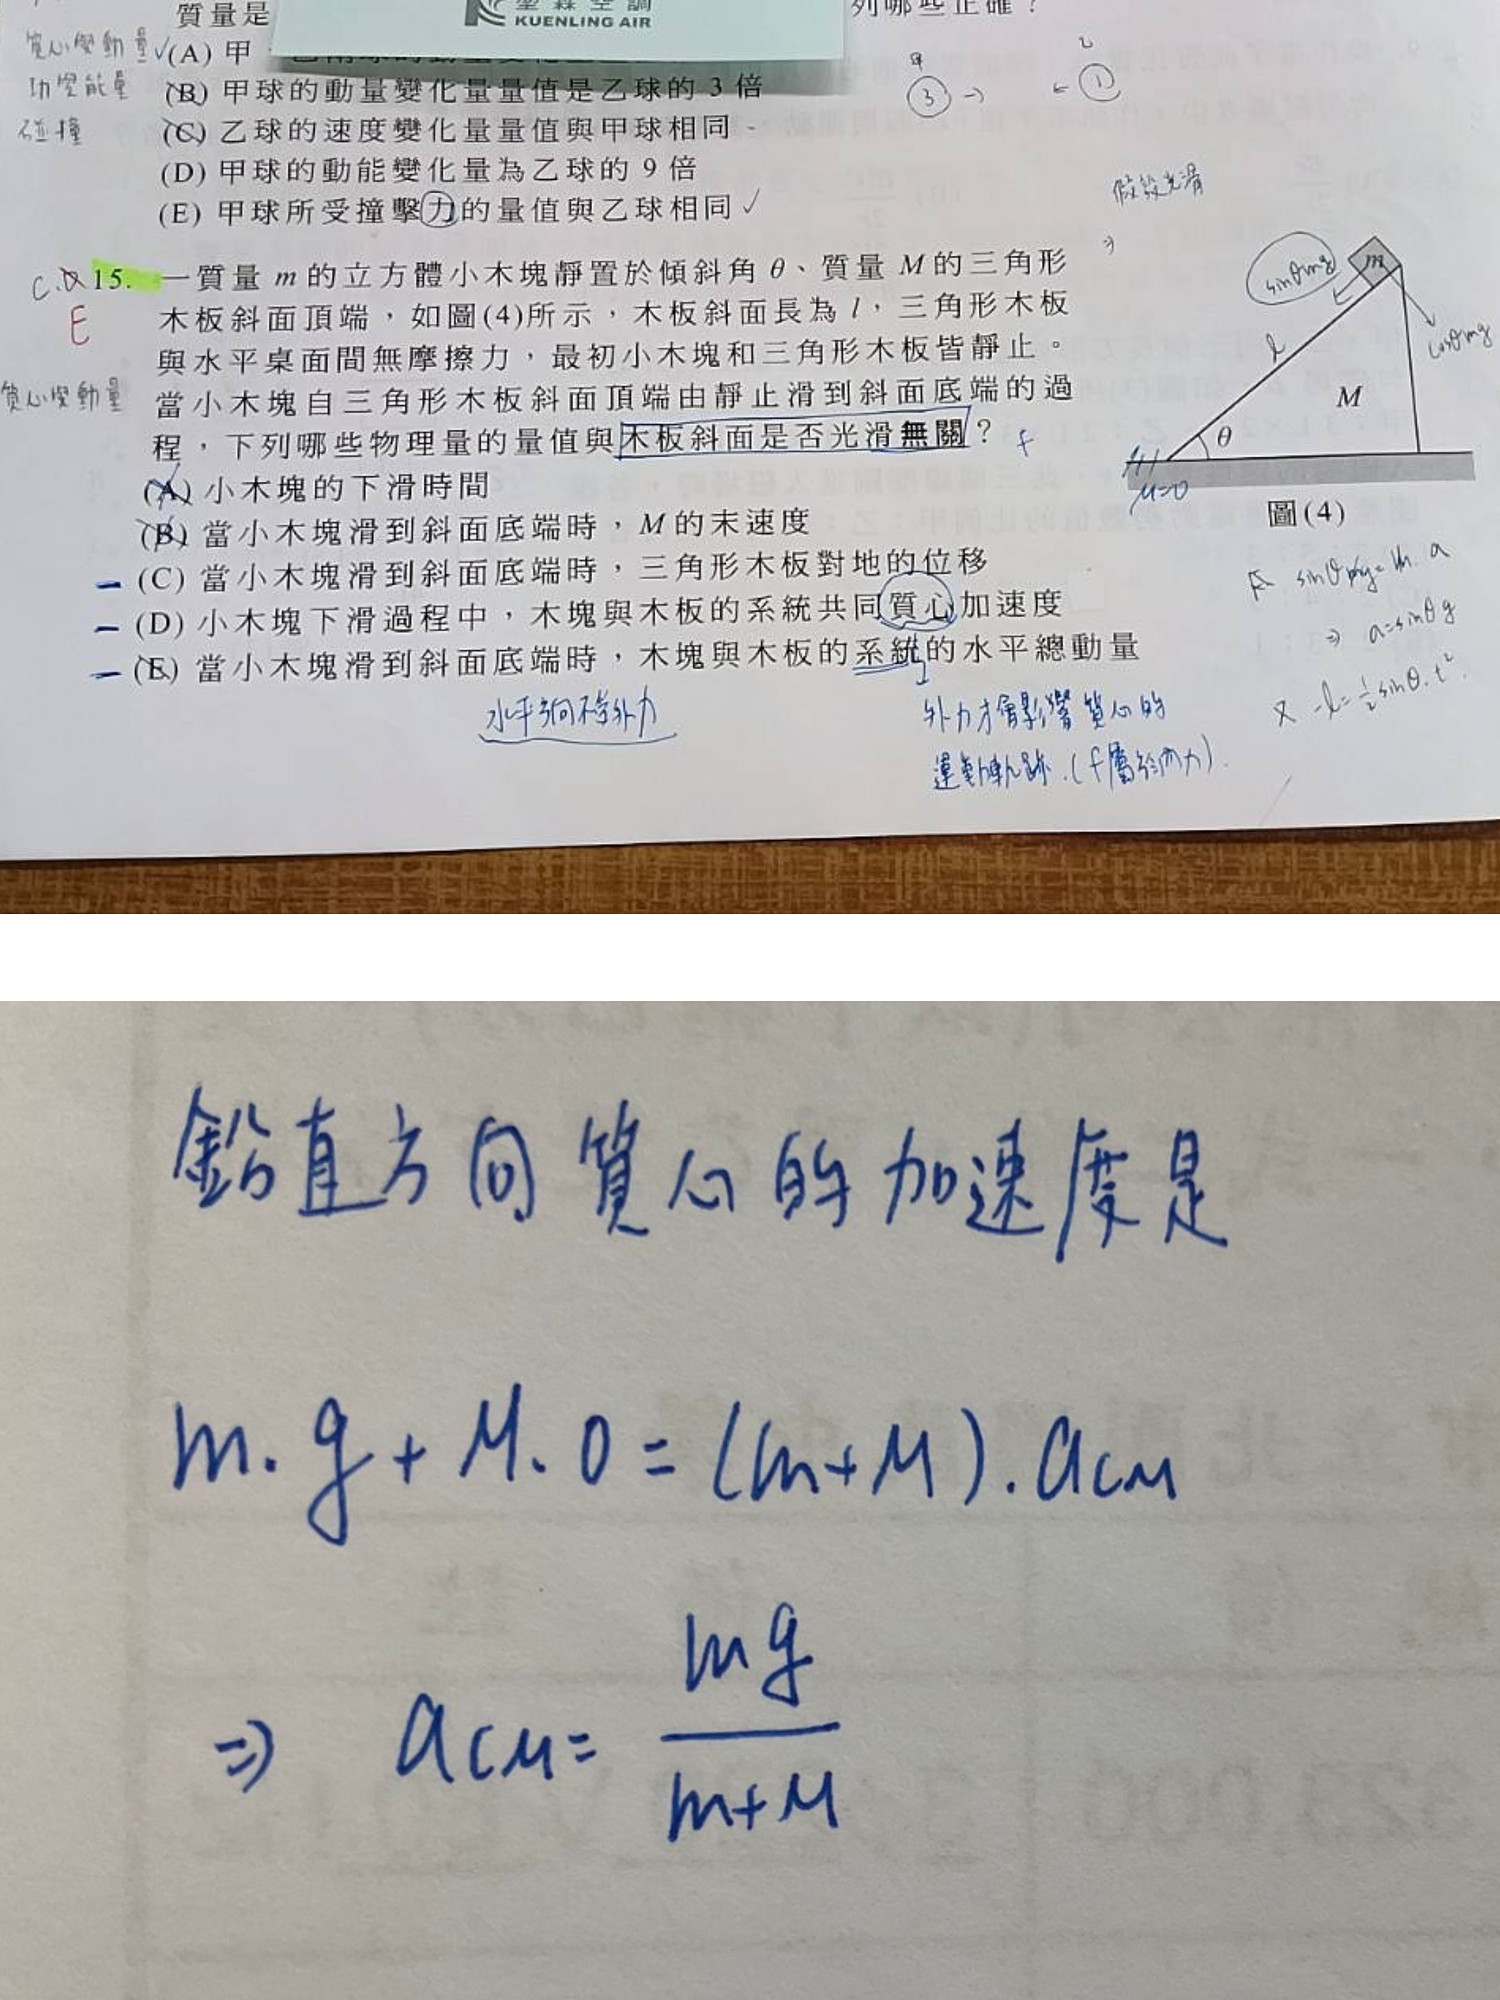 質量是
堃霖空調
KUENLING AIR
列哪些正確？
質心與動量 ✓(A) 甲
功與能量 (B) 甲球的動量變化量量值是乙球的 3 倍
碰撞 (C) 乙球的速度變化量量值與甲球相同
(D) 甲球的動能變化量為乙球的 9 倍
(E) 甲球所受撞擊力的量值與乙球相同 ✓
甲 乙
③ → ← ①
假設光滑
C.D 15. 一質量 m 的立方體小木塊靜置於傾斜角 θ、質量 M 的三角形
E 木板斜面頂端，如圖(4)所示，木板斜面長為 l，三角形木板
與水平桌面間無摩擦力，最初小木塊和三角形木板皆靜止。
質心與動量 當小木塊自三角形木板斜面頂端由靜止滑到斜面底端的過
程，下列哪些物理量的量值與木板斜面是否光滑無關？ f
(A) 小木塊的下滑時間
(B) 當小木塊滑到斜面底端時，M 的末速度
(C) 當小木塊滑到斜面底端時，三角形木板對地的位移
(D) 小木塊下滑過程中，木塊與木板的系統共同質心加速度
(E) 當小木塊滑到斜面底端時，木塊與木板的系統的水平總動量
水平方向不受外力
外力才會影響質心的
運動軌跡.(f屬於內力).
sinθmg m
cosθmg
l
M
θ
μ=0
圖(4)
sinθmg=m.a
⇒ a=sinθg
又 -l=½sinθ.t².
鉛直方向質心的加速度是
m.g+M.0=(m+M).aCM
⇒ aCM= mg
m+M